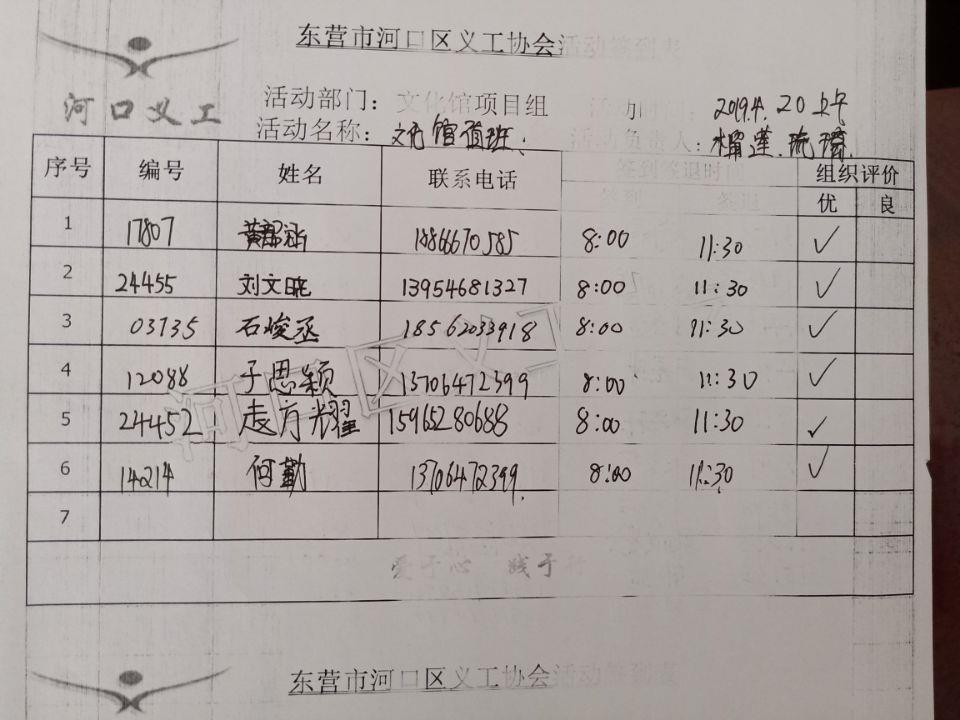 东营市河口区义工协会活动签到表
河口义工
活动部门：文化馆项目组 活动时间 2019.4.20上午
活动名称：文化馆值班 活动负责人：榴莲、琉璃
序号 编号 姓名 联系电话 签到签退时间 组织评价
签到 签退 优 良
1 17807 黄 8:00 11:30 ✓
2 24455 刘文晓 13954681327 8:00 11:30 ✓
3 03735 石峻丞 18562033918 8:00 11:30 ✓
4 12088 于思颖 13706472399 8:00 11:30 ✓
5 24452 方耀 15965280688 8:00 11:30 ✓
6 14214 何勤 13706472399 8:00 11:30 ✓
7
河口区义工
爱于心 践于行
东营市河口区义工协会活动签到表